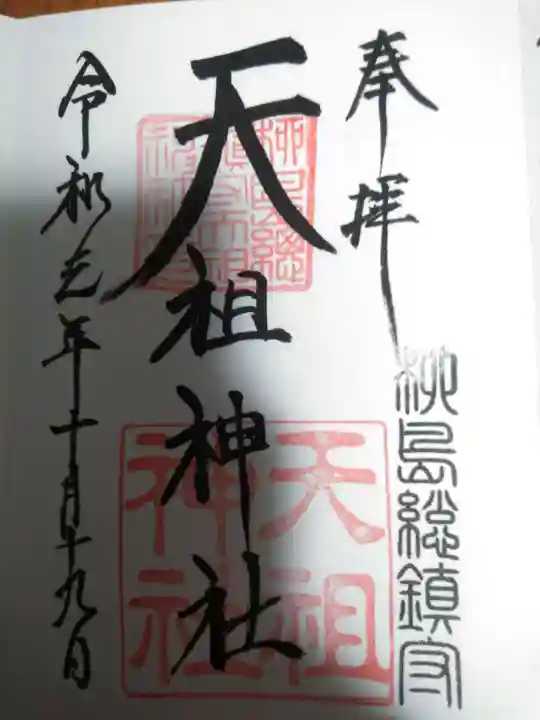 奉拝
柳島総鎮守
天祖神社
天祖神社
令和元年十月十九日